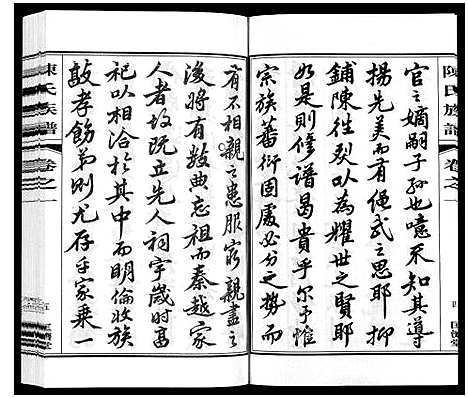 陳氏族譜
卷之一
官之嫡嗣子孫也噫不知其導
揚先美而有繩武之思耶抑
鋪陳往烈以為耀世之賢耶
如是則修譜曷貴乎尔予惟
宗族蕃衍固處必分之勢而
有不相親之患服窮親盡之
後將有數典忘祖而秦越家
人者故既立先人祠宇歲時高
祀以相洽於其中而明倫收族
敲孝飭弟則尤存乎家乘一
陳氏族譜
卷之一